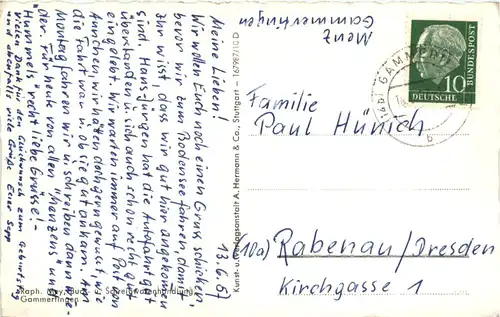 Menz
Gammertingen
13.6.61
Meine Lieben!
Wir wollen Euch noch einen Gruss schicken,
bevor wir zum Bodensee fahren, damit
Ihr wisst, dass wir gut hier angekommen
sind. Hans-Jürgen hat die Autofahrt gut
überstanden u. sich auch schon recht gut
eingelebt. Wir warten immer auf Post von
Ännchen, wir hätten doch gern gewusst, wie
die Fahrt war u. ob sie gut ankam. Am
Montag fahren wir u. schreiben dann wie-
der. Für heute von allen "Menzens" und
"Hummels" recht liebe Grüsse!-
Vielen Dank für den Glückwunsch zum Geburtstag
und ebenfalls viele Grüße Euer Sepp
Kunst- u. Verlagsanstalt A. Hermann & Co., Stuttgart – 167987/10 D
Gammertingen
GAMMERTI
b
10
DEUTSCHE
BUNDESPOST
Familie
Paul Hünich
(10a) Rabenau/Dresden
Kirchgasse 1